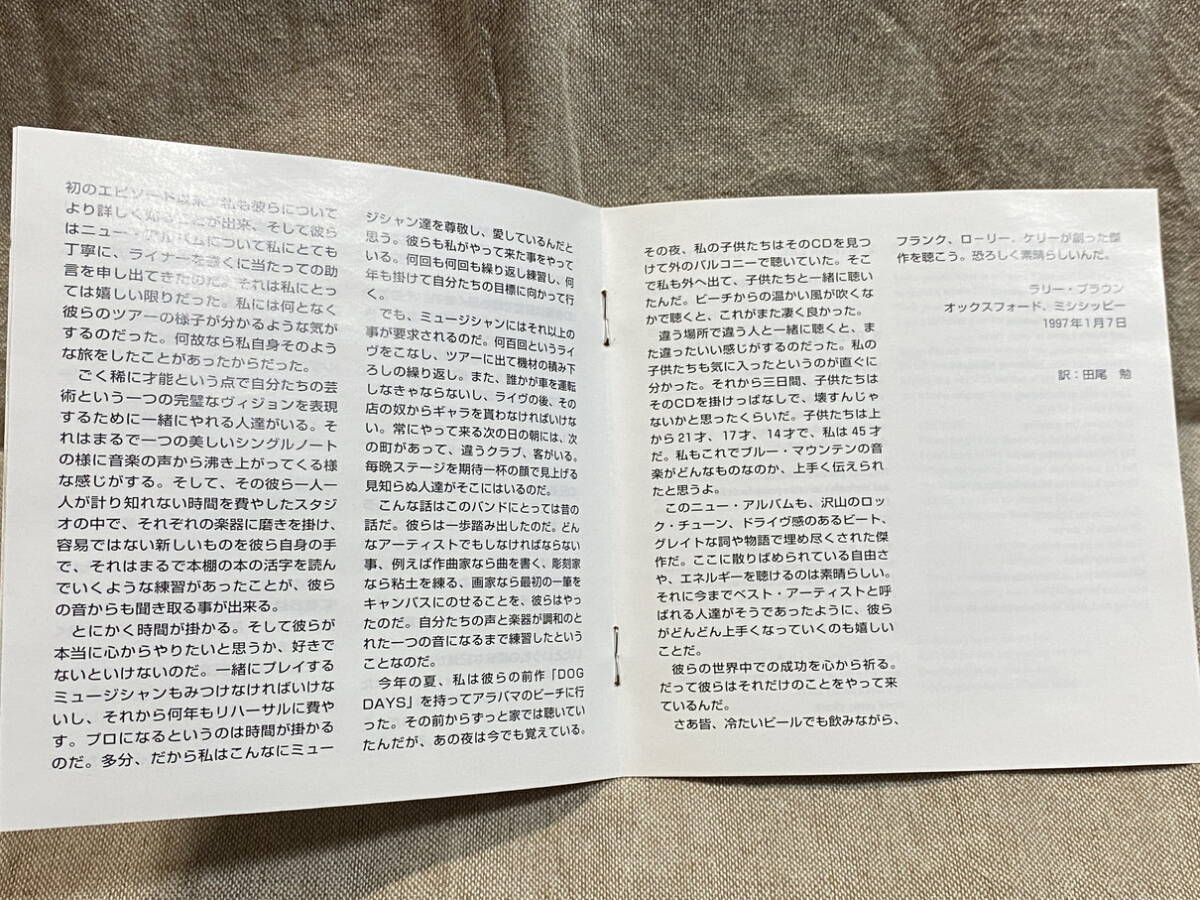 初のエピソード以来、私も彼らについて
より詳しく知ることが出来、そして彼ら
はニュー・アルバムについて私にとても
丁寧に、ライナーを書くに当たっての助
言を申し出てきたのだ。それは私にとっ
ては嬉しい限りだった。私には何となく
彼らのツアーの様子が分かるような気が
するのだった。何故なら私自身そのよう
な旅をしたことがあったからだった。
ごく稀に才能という点で自分たちの芸
術という一つの完璧なヴィジョンを表現
するために一緒にやれる人達がいる。そ
れはまるで一つの美しいシングルノート
の様に音楽の声から沸き上がってくる様
な感じがする。そして、その彼ら一人一
人が計り知れない時間を費やしたスタジ
オの中で、それぞれの楽器に磨きを掛け、
容易ではない新しいものを彼ら自身の手
で、それはまるで本棚の本の活字を読ん
でいくような練習があったことが、彼ら
の音からも聞き取る事が出来る。
とにかく時間が掛かる。そして彼らが
本当に心からやりたいと思うか、好きで
ないといけないのだ。一緒にプレイする
ミュージシャンもみつけなければいけな
いし、それから何年もリハーサルに費や
す。プロになるというのは時間が掛かる
のだ。多分、だから私はこんなにミュー
ジシャン達を尊敬し、愛しているんだと
思う。彼らも私がやって来た事をやって
いる。何回も何回も繰り返し練習し、何
年も掛けて自分たちの目標に向かって行
く。
でも、ミュージシャンにはそれ以上の
事が要求されるのだ。何百回というライ
ヴをこなし、ツアーに出て機材の積み下
ろしの繰り返し。また、誰かが車を運転
しなきゃならないし、ライヴの後、その
店の奴からギャラを貰わなければいけな
い。常にやって来る次の日の朝には、次
の町があって、違うクラブ、客がいる。
毎晩ステージを期待一杯の顔で見上げる
見知らぬ人達がそこにはいるのだ。
こんな話はこのバンドにとっては昔の
話だ。彼らは一歩踏み出したのだ。どん
なアーティストでもしなければならない
事、例えば作曲家なら曲を書く、彫刻家
なら粘土を練る、画家なら最初の一筆を
キャンバスにのせることを、彼らはやっ
たのだ。自分たちの声と楽器が調和のと
れた一つの音になるまで練習したという
ことなのだ。
今年の夏、私は彼らの前作「DOG
DAYS」を持ってアラバマのビーチに行
った。その前からずっと家では聴いてい
たんだが、あの夜は今でも覚えている。
その夜、私の子供たちはそのCDを見つ
けて外のバルコニーで聴いていた。そこ
で私も外へ出て、子供たちと一緒に聴い
たんだ。ビーチからの温かい風が吹くな
かで聴くと、これがまた凄く良かった。
違う場所で違う人と一緒に聴くと、ま
た違ったいい感じがするのだった。私の
子供たちも気に入ったというのが直ぐに
分かった。それから三日間、子供たちは
そのCDを掛けっぱなしで、壊すんじゃ
ないかと思ったくらいだ。子供たちは上
から21才、17才、14才で、私は45才
だ。私もこれでブルー・マウンテンの音
楽がどんなものなのか、上手く伝えられ
たと思うよ。
このニュー・アルバムも、沢山のロッ
ク・チューン、ドライヴ感のあるビート、
グレイトな詞や物語で埋め尽くされた傑
作だ。ここに散りばめられている自由さ
や、エネルギーを聴けるのは素晴らしい。
それに今までベスト・アーティストと呼
ばれる人達がそうであったように、彼ら
がどんどん上手くなっていくのも嬉しい
ことだ。
彼らの世界中での成功を心から祈る。
だって彼らはそれだけのことをやって来
ているんだ。
さあ皆、冷たいビールでも飲みながら、
フランク、ローリー、ケリーが創った傑
作を聴こう。恐ろしく素晴らしいんだ。
ラリー・ブラウン
オックスフォード、ミシシッピー
1997年1月7日
訳：田尾　勉